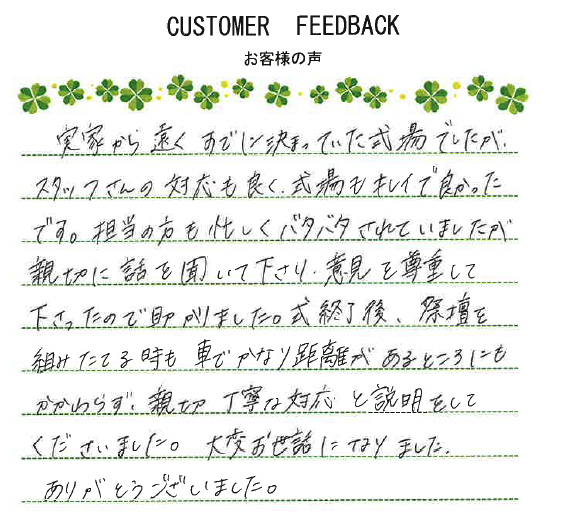 CUSTOMER FEEDBACK
お客様の声
実家から遠くすでに決まっていた式場でしたが、
スタッフさんの対応も良く、式場もキレイで良かった
です。担当の方も忙しくバタバタされていましたが
親切に話を聞いて下さり、意見を尊重して
下さったので助かりました。式終了後、祭壇を
組みたてる時も車でかなり距離があるところにも
かかわらず、親切丁寧な対応と説明をして
くださいました。大変お世話になりました。
ありがとうございました。